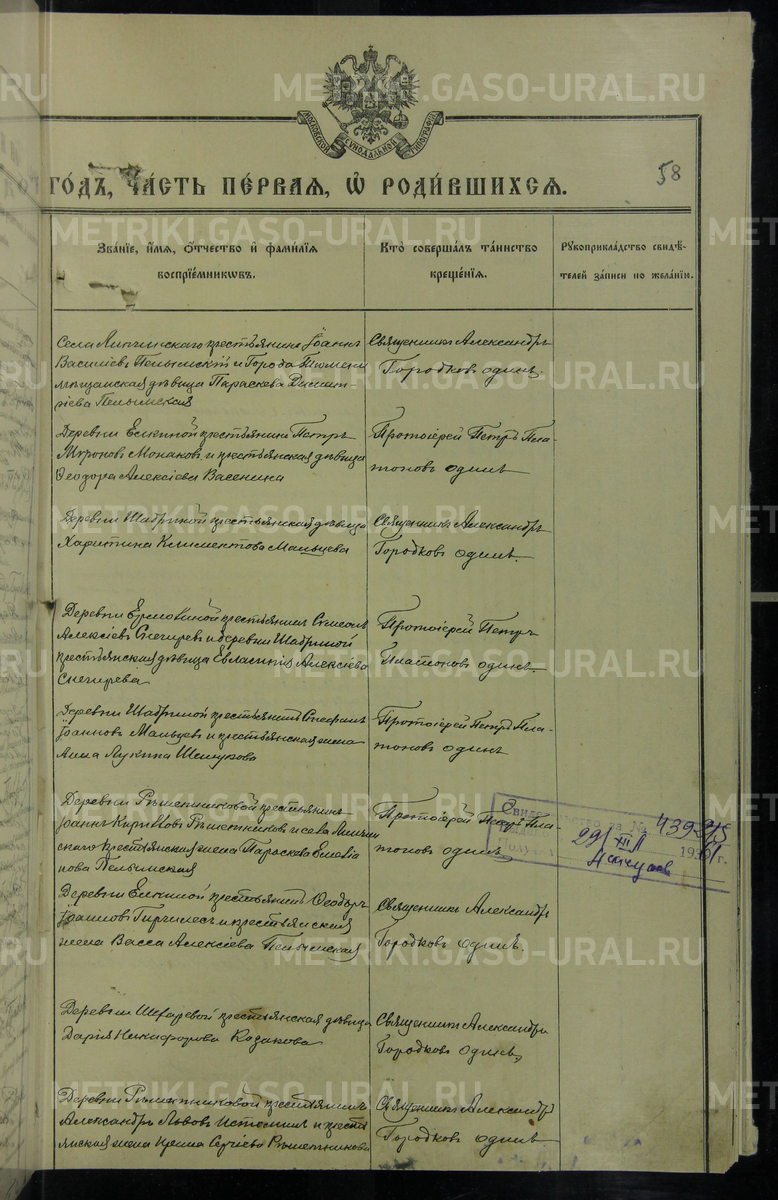 METRIKI.GASO-URAL.RU
МОСКОВСКОЙ СѴНОДАЛЬНОЙ ТИПОГРАФІИ
58
ГО́ДЪ, ЧА́СТЬ ПЕ́РВАЯ, Ѽ РОДИ́ВШИХСЯ.
Зва́нїе, и́мя, о́тчество и҆ фами́лїя
воспрїе́мникѡвъ.
Кто̀ соверша́лъ та́инство
креще́нїя.
Рꙋкоприкла́дство свидѣ́-
телей за́писи по жела́нїю.
Села Липчинскаго крестьянинъ Іоаннъ
Василіевъ Пелымскій и Города Тюмени
мѣщанская дѣвица Параскева Димит-
ріева Пелымская
Священникъ Александръ
Городковъ одинъ.
Деревни Елкиной крестьянинъ Петръ
Мироновъ Монаковъ и крестьянская дѣвица
Ѳеодора Алексіева Васенина
Протоіерей Петръ Пла-
тоновъ одинъ
Деревни Шабриной крестьянская дѣвица
Харитина Климентова Мальцева
Священникъ Александръ
Городковъ одинъ.
Деревни крестьянинъ Симеонъ
Алексіевъ Снегиревъ и деревни Шабриной
крестьянская дѣвица Евлампія Алексіева
Снегирева
Протоіерей Петръ
Платоновъ одинъ.
Деревни Шабриной крестьянинъ Стефанъ
Іоанновъ Мальцевъ и крестьянская жена
Анна Лукина Шемукова
Протоіерей Петръ Пла-
тоновъ одинъ
Деревни Рѣшетниковой крестьянинъ
Іоаннъ Кирилловъ Рѣшетниковъ и села Липчин
скаго крестьянская жена Параскева Емелiа
нова Пелымская
Протоіерей Петръ Пла-
тоновъ одинъ
Свидетельство за № 439315
29/XII 193 г.
Деревни Елкиной крестьянинъ Ѳеодоръ
Іоанновъ и крестьянская
жена Васса Алексіева Пелымская
Священникъ Александръ
Городковъ одинъ.
Деревни крестьянская дѣвица
Дарія Никифорова Козакова
Священникъ Александръ
Городковъ одинъ.
Деревни Рѣшетниковой крестьянинъ
Александръ Львовъ Истоминъ и кресть
янская жена Ирина Сергіева Рѣшетникова
Священникъ Александръ
Городковъ одинъ